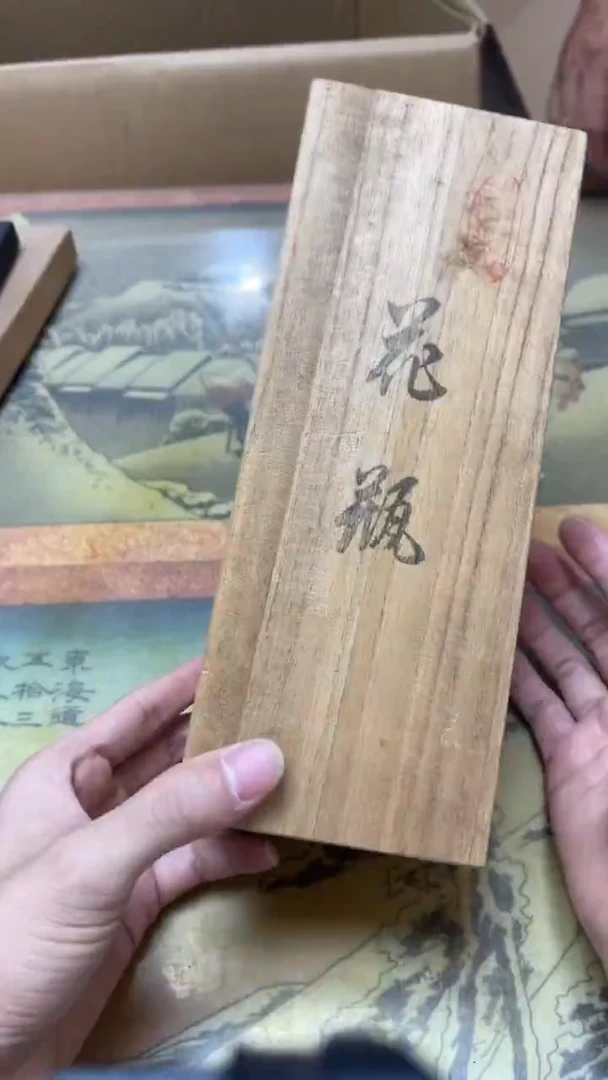 花瓶
東海道
五拾三
次